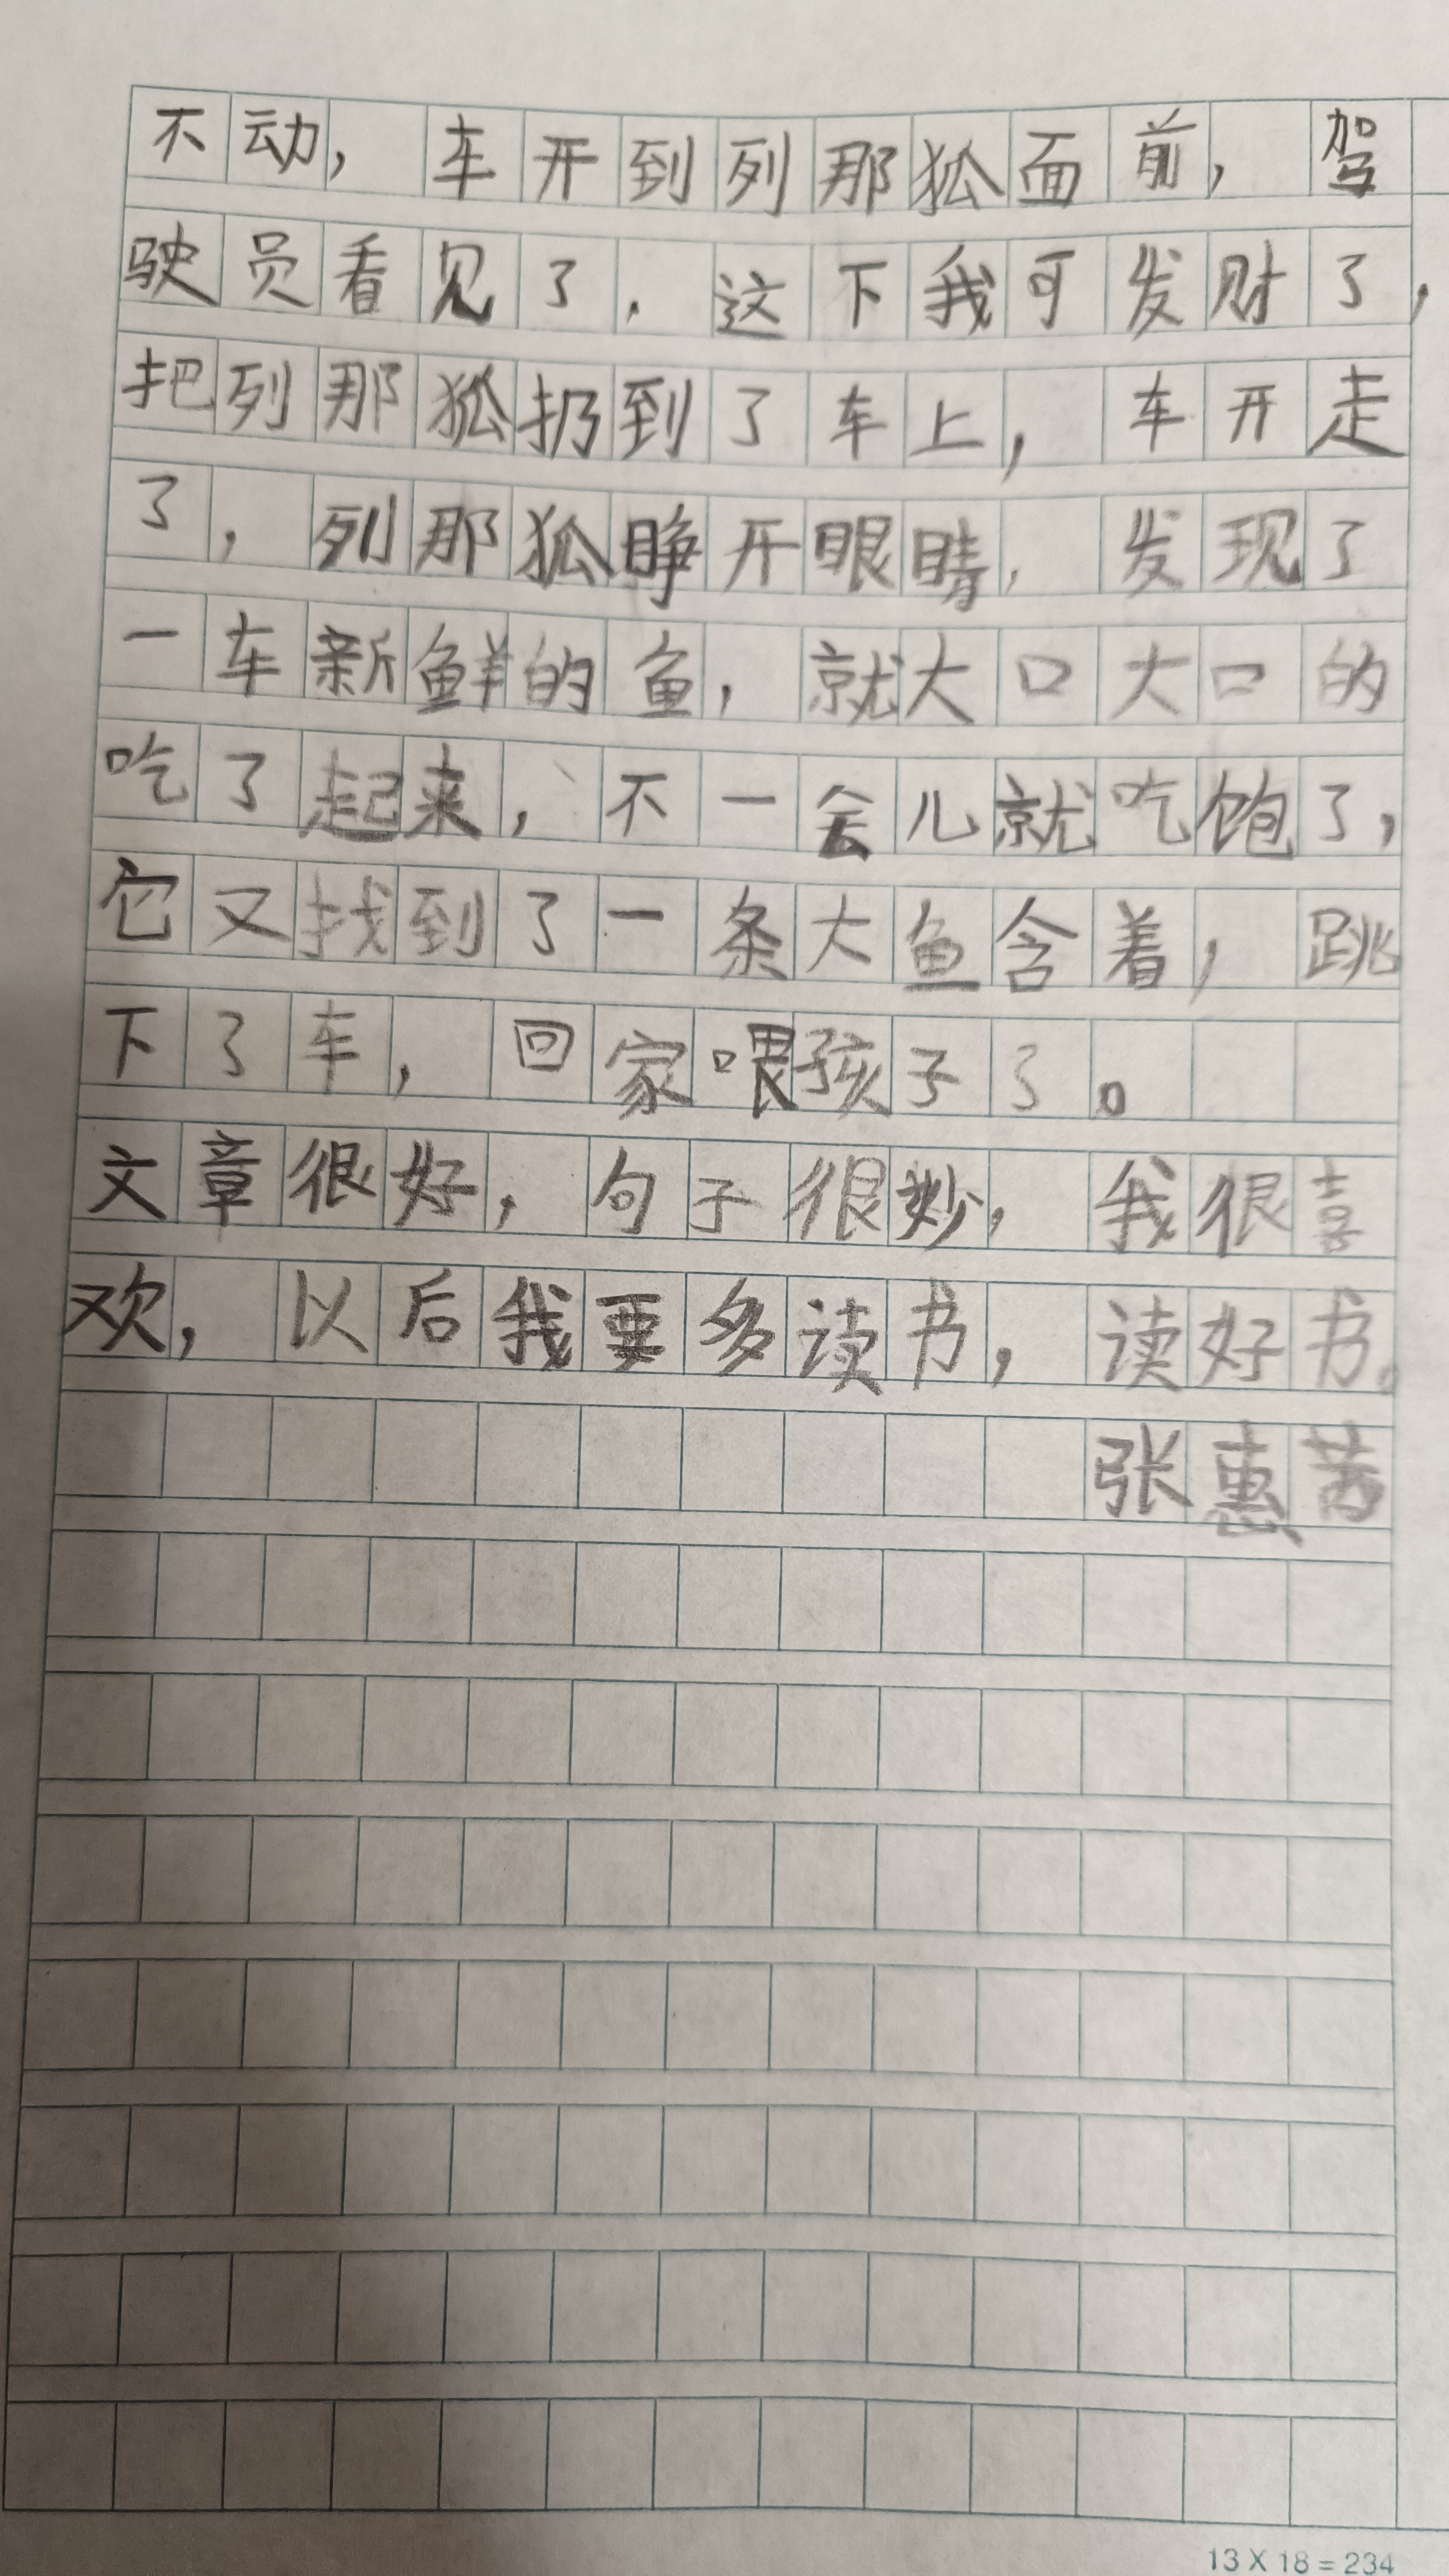 不动，车开到列那狐面前，驾
驶员看见了，这下我可发财了，
把列那狐扔到了车上，车开走
了，列那狐睁开眼睛，发现了
一车新鲜的鱼，就大口大口的
吃了起来，不一会儿就吃饱了，
它又找到了一条大鱼含着，跳
下了车，回家喂孩子了。
文章很好，句子很妙，我很喜
欢，以后我要多读书，读好书。
张惠茜
13 X 18 = 234